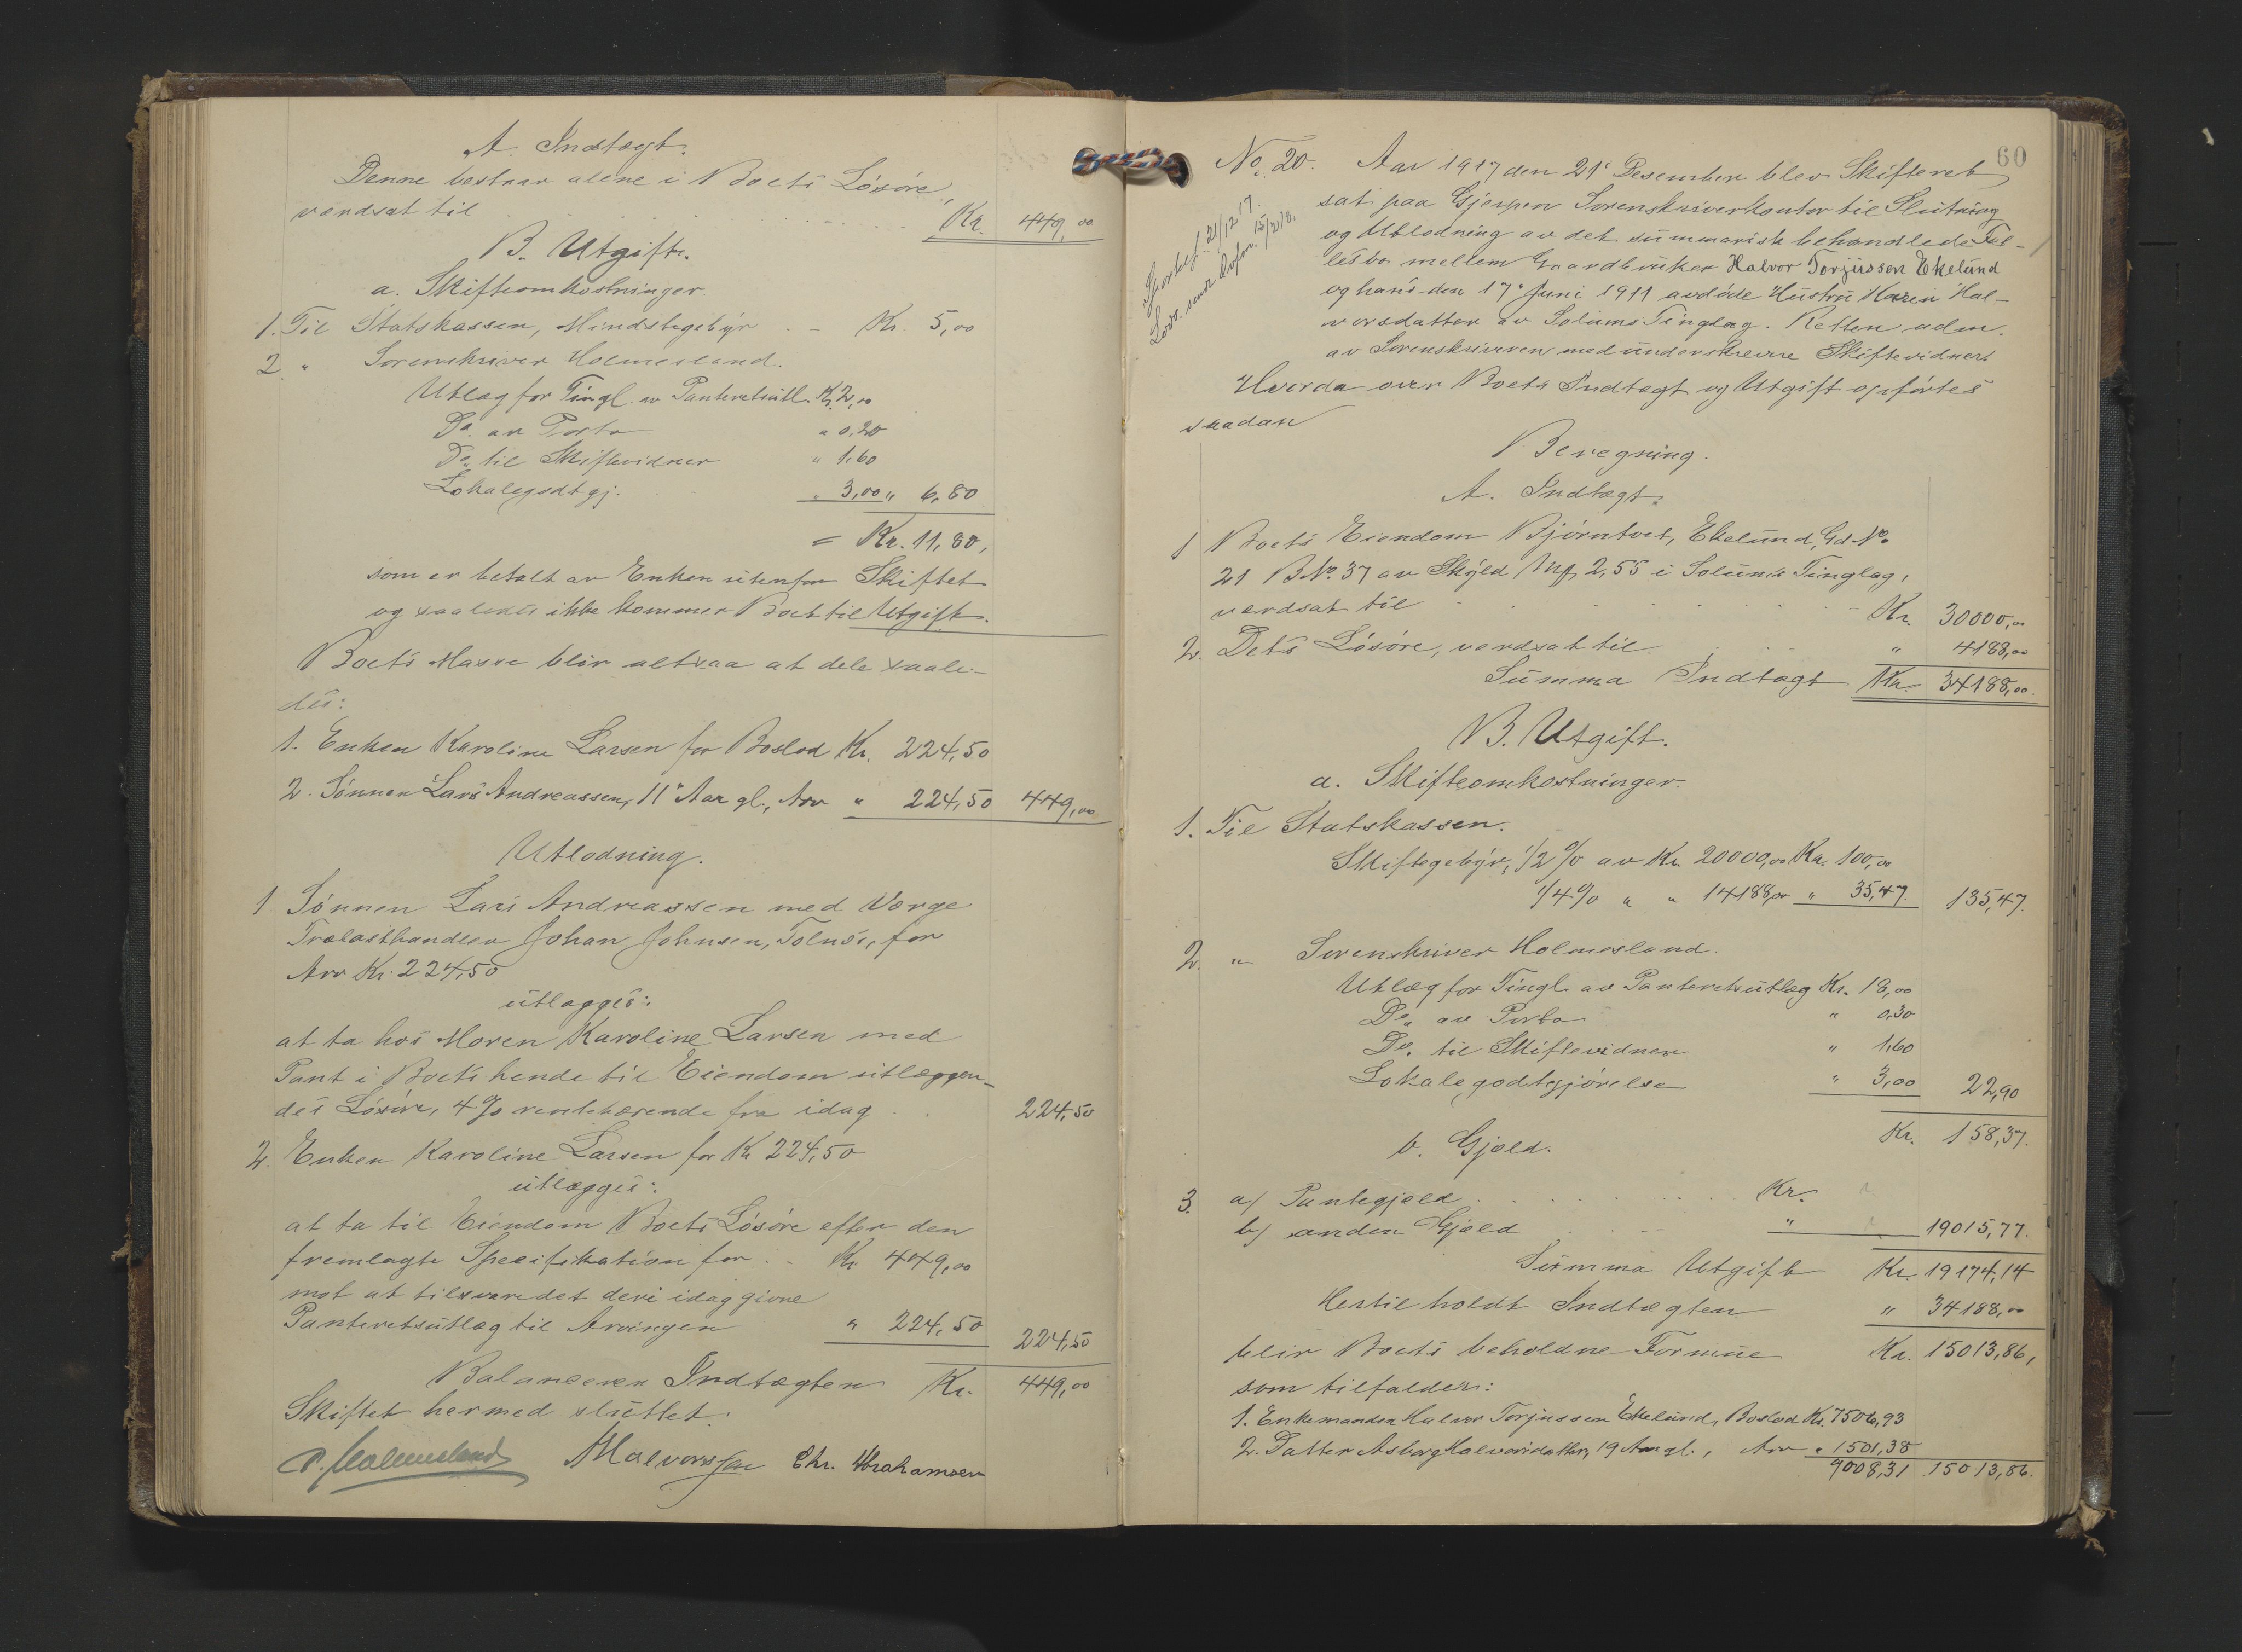 A. Indtægt.
Denne bestaar alene i Boets Løsøre,
værdsat til . . . . . . Kr. 449,00
B. Utgift.
a. Skifteomkostninger.
1. Til Statskassen, Mindstegebyr . – Kr. 5,00
2. " Sorenskriver Holmesland.
Utlæg for Tingl. av Panteretsutl. Kr. 2,00
Do. av Porto " 0,20
Do. til Skiftevidner " 1,60
Lokalegodtgj. . . " 3,00 " 6,80
= Kr. 11,80,
som er betalt av Enken utenfor Skiftet
og saaledes ikke kommer Boet til Utgift.
Boets Masse blir altsaa at dele saale-
des:
1. Enken Karoline Larsen for Boslod Kr. 224,50
2. Sønnen Lars Andreassen, 11 Aar gl., Arv " 224,50 449,00
Utlodning.
1. Sønnen Lars Andreassen med Værge
Trælasthandler Johan Johnsen, Tolnæs, for
Arv Kr. 224,50
utlægges:
at ta hos Moren Karoline Larsen med
Pant i Boets hende til Eiendom utlæggen-
des Løsøre, 4% rentebærende fra idag . . 224,50
2. Enken Karoline Larsen for Kr. 224,50
utlægges:
at ta til Eiendom Boets Løsøre efter den
fremlagte Specifikation for . . Kr. 449,00
mot at tilsvare det deri idag givne
Panteretsutlæg til Arvingen " 224,50 224,50
Balancerer Indtægten Kr. 449,00
Skiftet hermed sluttet.
P. Holmesland Halvorsen Chr. Abrahamsen
60
No. 20. Aar 1917 den 21' Desember blev Skifteret
sat paa Gjerpen Sorenskriverkontor til Slutning
og Utlodning av det summarisk behandlede Fæl-
lesbo mellem Gaardbruker Halvor Torjussen Ekelund
og hans den 17' Juni 1911 avdøde Hustru Maren Hal-
vorsdatter av Solums Tinglag. Retten adm.
av Sorenskriveren med underskrevne Skiftevidner.
Sportel f. 21/12 17.
Hvorda over Boets Indtægt og Utgift opførtes
saadan
Beregning.
A. Indtægt.
1 Boets Eiendom Bjørntvet, Ekelund, Gd. No.
21 B.No. 37 av Skyld Mk. 2,55 i Solums Tinglag,
værdsat til . . . . . . Kr. 30000,00
2. Dets Løsøre, værdsat til . . " 4188,00
Summa Indtægt Kr. 34188,00.
B. Utgift.
a. Skifteomkostninger.
1. Til Statskassen.
Skiftegebyr, 1/2 % av Kr. 20000,00 Kr. 100,00
1/4 % " " 14188,00 " 35,47. 135,47.
2. " Sorenskriver Holmesland.
Utlæg for Tingl. av Panteretsutlæg Kr. 18,00
Do. av Porto " 0,30
Do. til Skiftevidner " 1,60
Lokalegodtgjørelse " 3,00 22,90
Kr. 158,37.
b. Gjæld.
3. a) Pantegjæld . . . . . . . Kr.
b) anden Gjæld . . – " 19015,77.
Summa Utgift Kr. 19174,14
Hertil holdt Indtægten " 34188,00
blir Boets beholdne Formue Kr. 15013,86,
som tilfalder:
1. Enkemanden Halvor Torjussen Ekelund, Boslod Kr. 7506,93
2. Datter Asborg Halvorsdatter, 19 Aar gl., Arv " 1501,38
9008,31 15013,86.